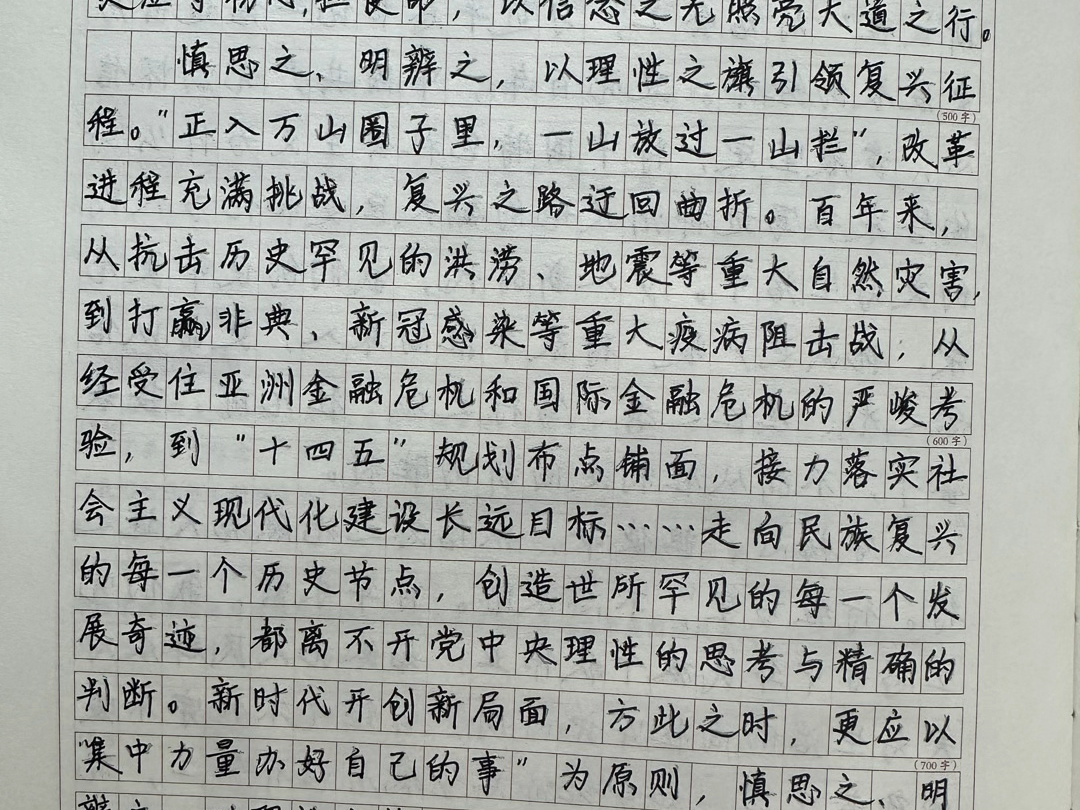 更应守初心,担使命，以信念之光照亮大道之行。
慎思之、明辨之，以理性之旗引领复兴征
(500字)
程。"正入万山圈子里，一山放过一山拦"，改革
进程充满挑战，复兴之路迂回曲折。百年来，
从抗击历史罕见的洪涝、地震等重大自然灾害，
到打赢非典、新冠感染等重大疫病阻击战，从
经受住亚洲金融危机和国际金融危机的严峻考
(600字)
验，到"十四五"规划布点铺面，接力落实社
会主义现代化建设长远目标……走向民族复兴
的每一个历史节点，创造世所罕见的每一个发
展奇迹，都离不开党中央理性的思考与精确的
判断。新时代开创新局面，方此之时，更应以
(700字)
"集中力量办好自己的事"为原则，慎思之、明
辨之